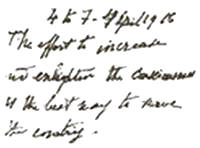 4 to 7 - April 19 06
The effort to increase
and enlighten the consciousness
is the best way to serve
the country.